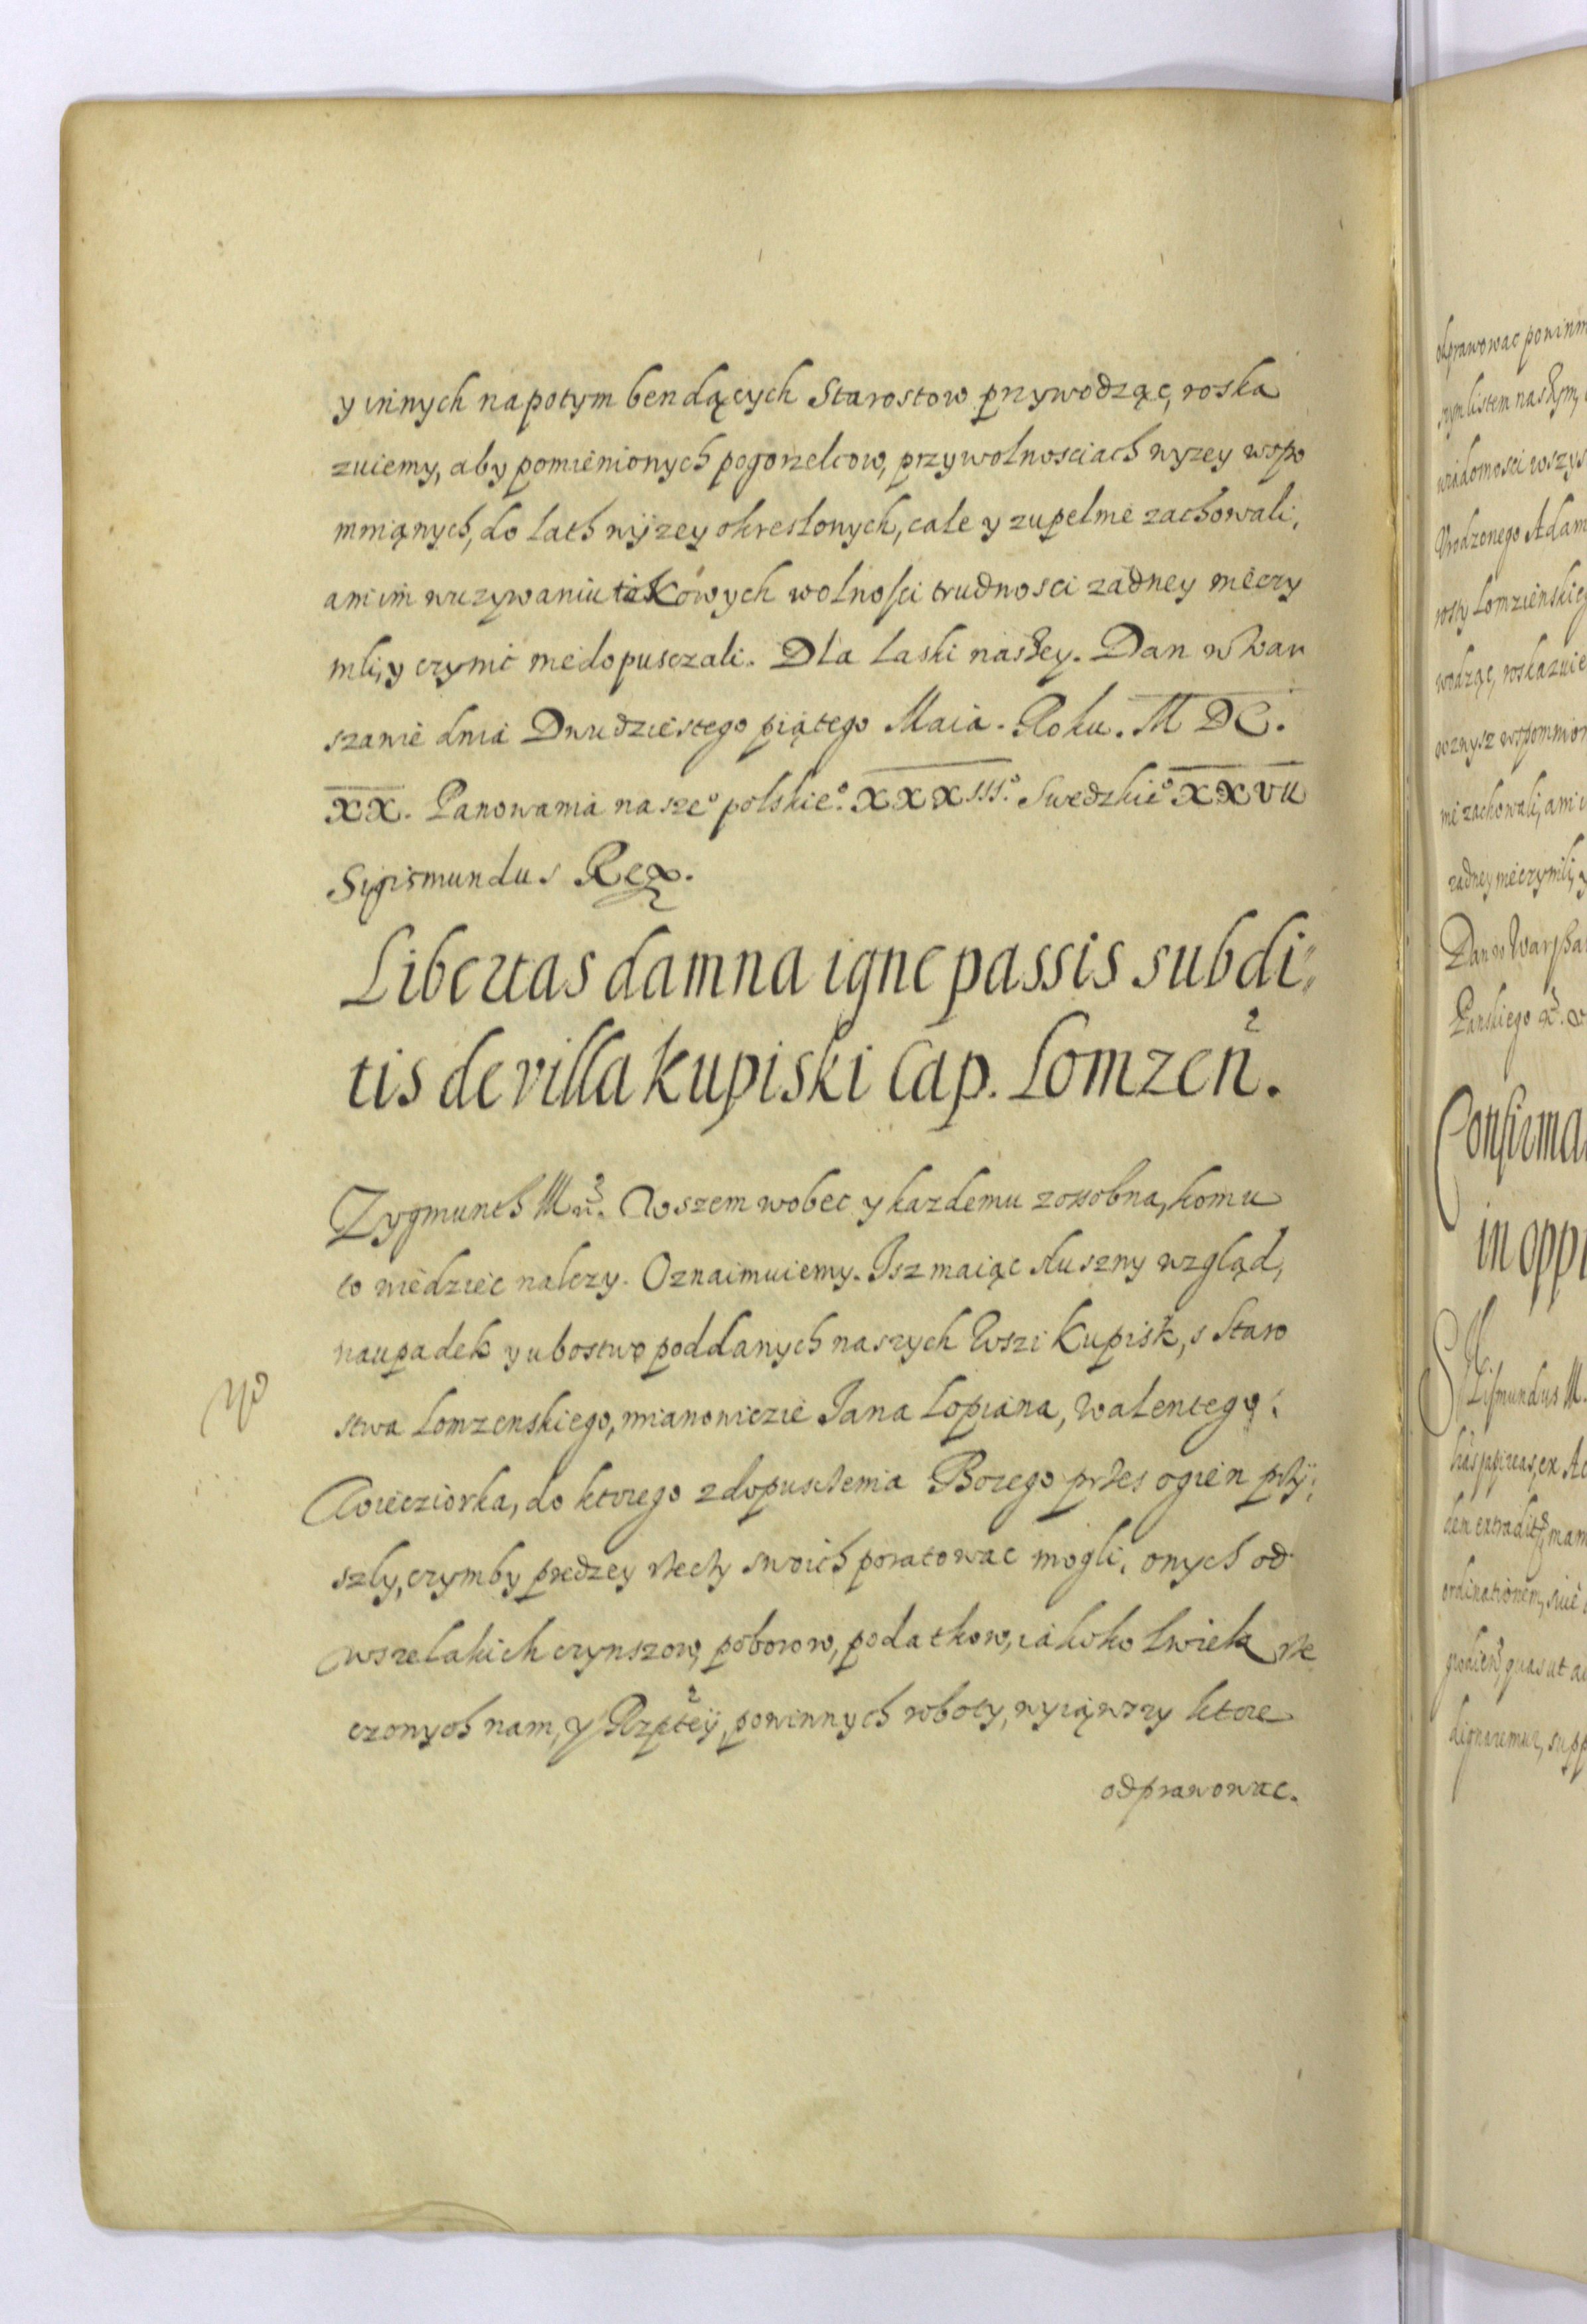 y innych napotym bendących Starostow przywodząc, roska
zuiemy, aby pomienionych pogorzelcow, przy wolnosciach wyzey wspo
mnianych, do lath wyzey okreslonych, cale y zupelnie zachowali,
ani im w uzywaniu takowych wolnosci trudnosci zadney nieczy
nili, y czynić niedopusczali. Dla laski naszey. Dan w War
szawie dnia Dwudziestego piątego Maia. Roku. M DC.
XX. Panowania nasze° polskie°. XXXIII.° Swedzkie° XXVII
Sigismundus Rex.
Libertas damna igne passis subdi
tis de villa Kupiski Cap. Lomzen̄.
Zygmunth III. Wszem wobec y kazdemu zossobna, komu
to wiedziec nalezy. Oznaimuiemy. Isz maiąc słuszny wzgląd,
na upadek y ubostwo poddanych naszych Wszi Kupisk, s Staro
stwa Lomzenskiego, mianowiczie Jana Lopiana, Walentego
Wiecziorka, do ktorego z dopuszczenia Bozego przes ogien przy
szly, czymby prędzey rzeczy swoich poratowac mogli, onych od
wszelakich czynszow, poborow, podatkow, iakokolwiek rze
czonych nam, y Rzpłey, powinnych roboty, wyiąwszy ktore
odprawowac.
odprawowac powinn
szym listem naszym,
wiadomosci wszys
Urodzonego Adam
rosty Lomzienskieg
wodząc, roskazuie
wspomnion
nie zachowali, ani i
zadney nieczynili, y
Dan w Warsza
Confirma
in oppi
Sigismundus III.
ordinationem, siue